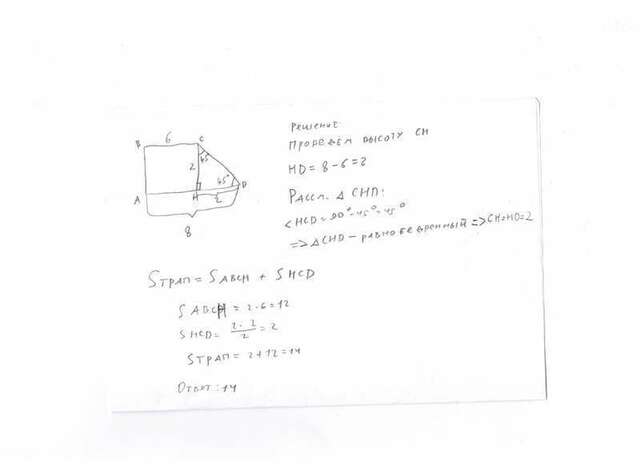 B 6 C
45
2
45°
A H 2 D
8
Решение
Проведём высоту CH
HD = 8 - 6 = 2
Рассм. △ CHD:
<HCD = 90° - 45° = 45°
=> △CHD - равнобедренный => CH=HD=2
Sтрап = S ABCH + S HCD
S ABCH = 2 · 6 = 12
S HCD = 2 · 2 / 2 = 2
Sтрап = 2 + 12 = 14
Ответ: 14